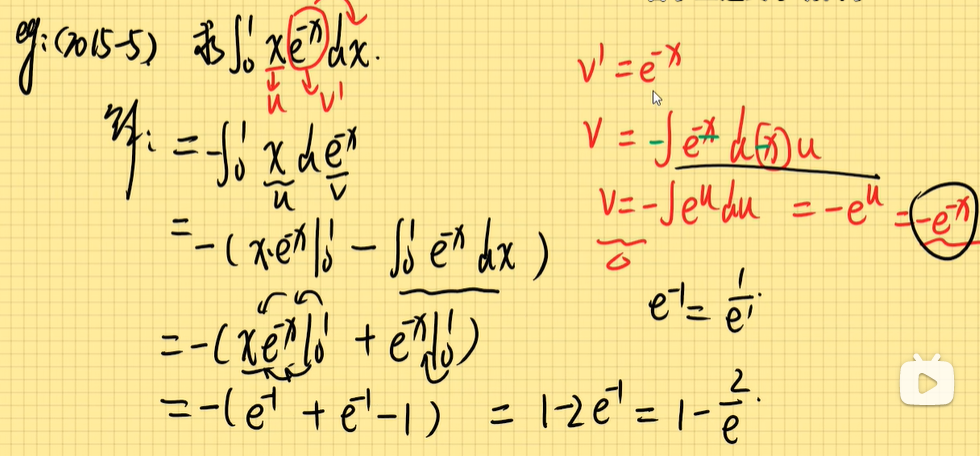 eg:(2015-5) 求∫₀¹ xe⁻ˣdx.
u v'
解: = -∫₀¹ x de⁻ˣ
u v
= -(x·e⁻ˣ|₀¹ - ∫₀¹ e⁻ˣ dx)
= -(xe⁻ˣ|₀¹ + e⁻ˣ|₀¹)
= -(e⁻¹ + e⁻¹ - 1) = 1-2e⁻¹ = 1 - 2/e.
v' = e⁻ˣ
v = -∫ e⁻ˣ d(-x) u
v = -∫eᵘdu = -eᵘ = -e⁻ˣ
e⁻¹ = 1/e¹.